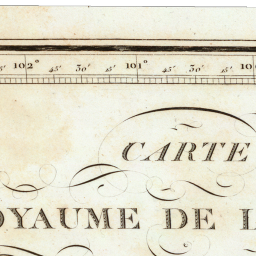 102° 45' 30' 15' 101° 45' 30' 15'
CARTE
OYAUME DE L